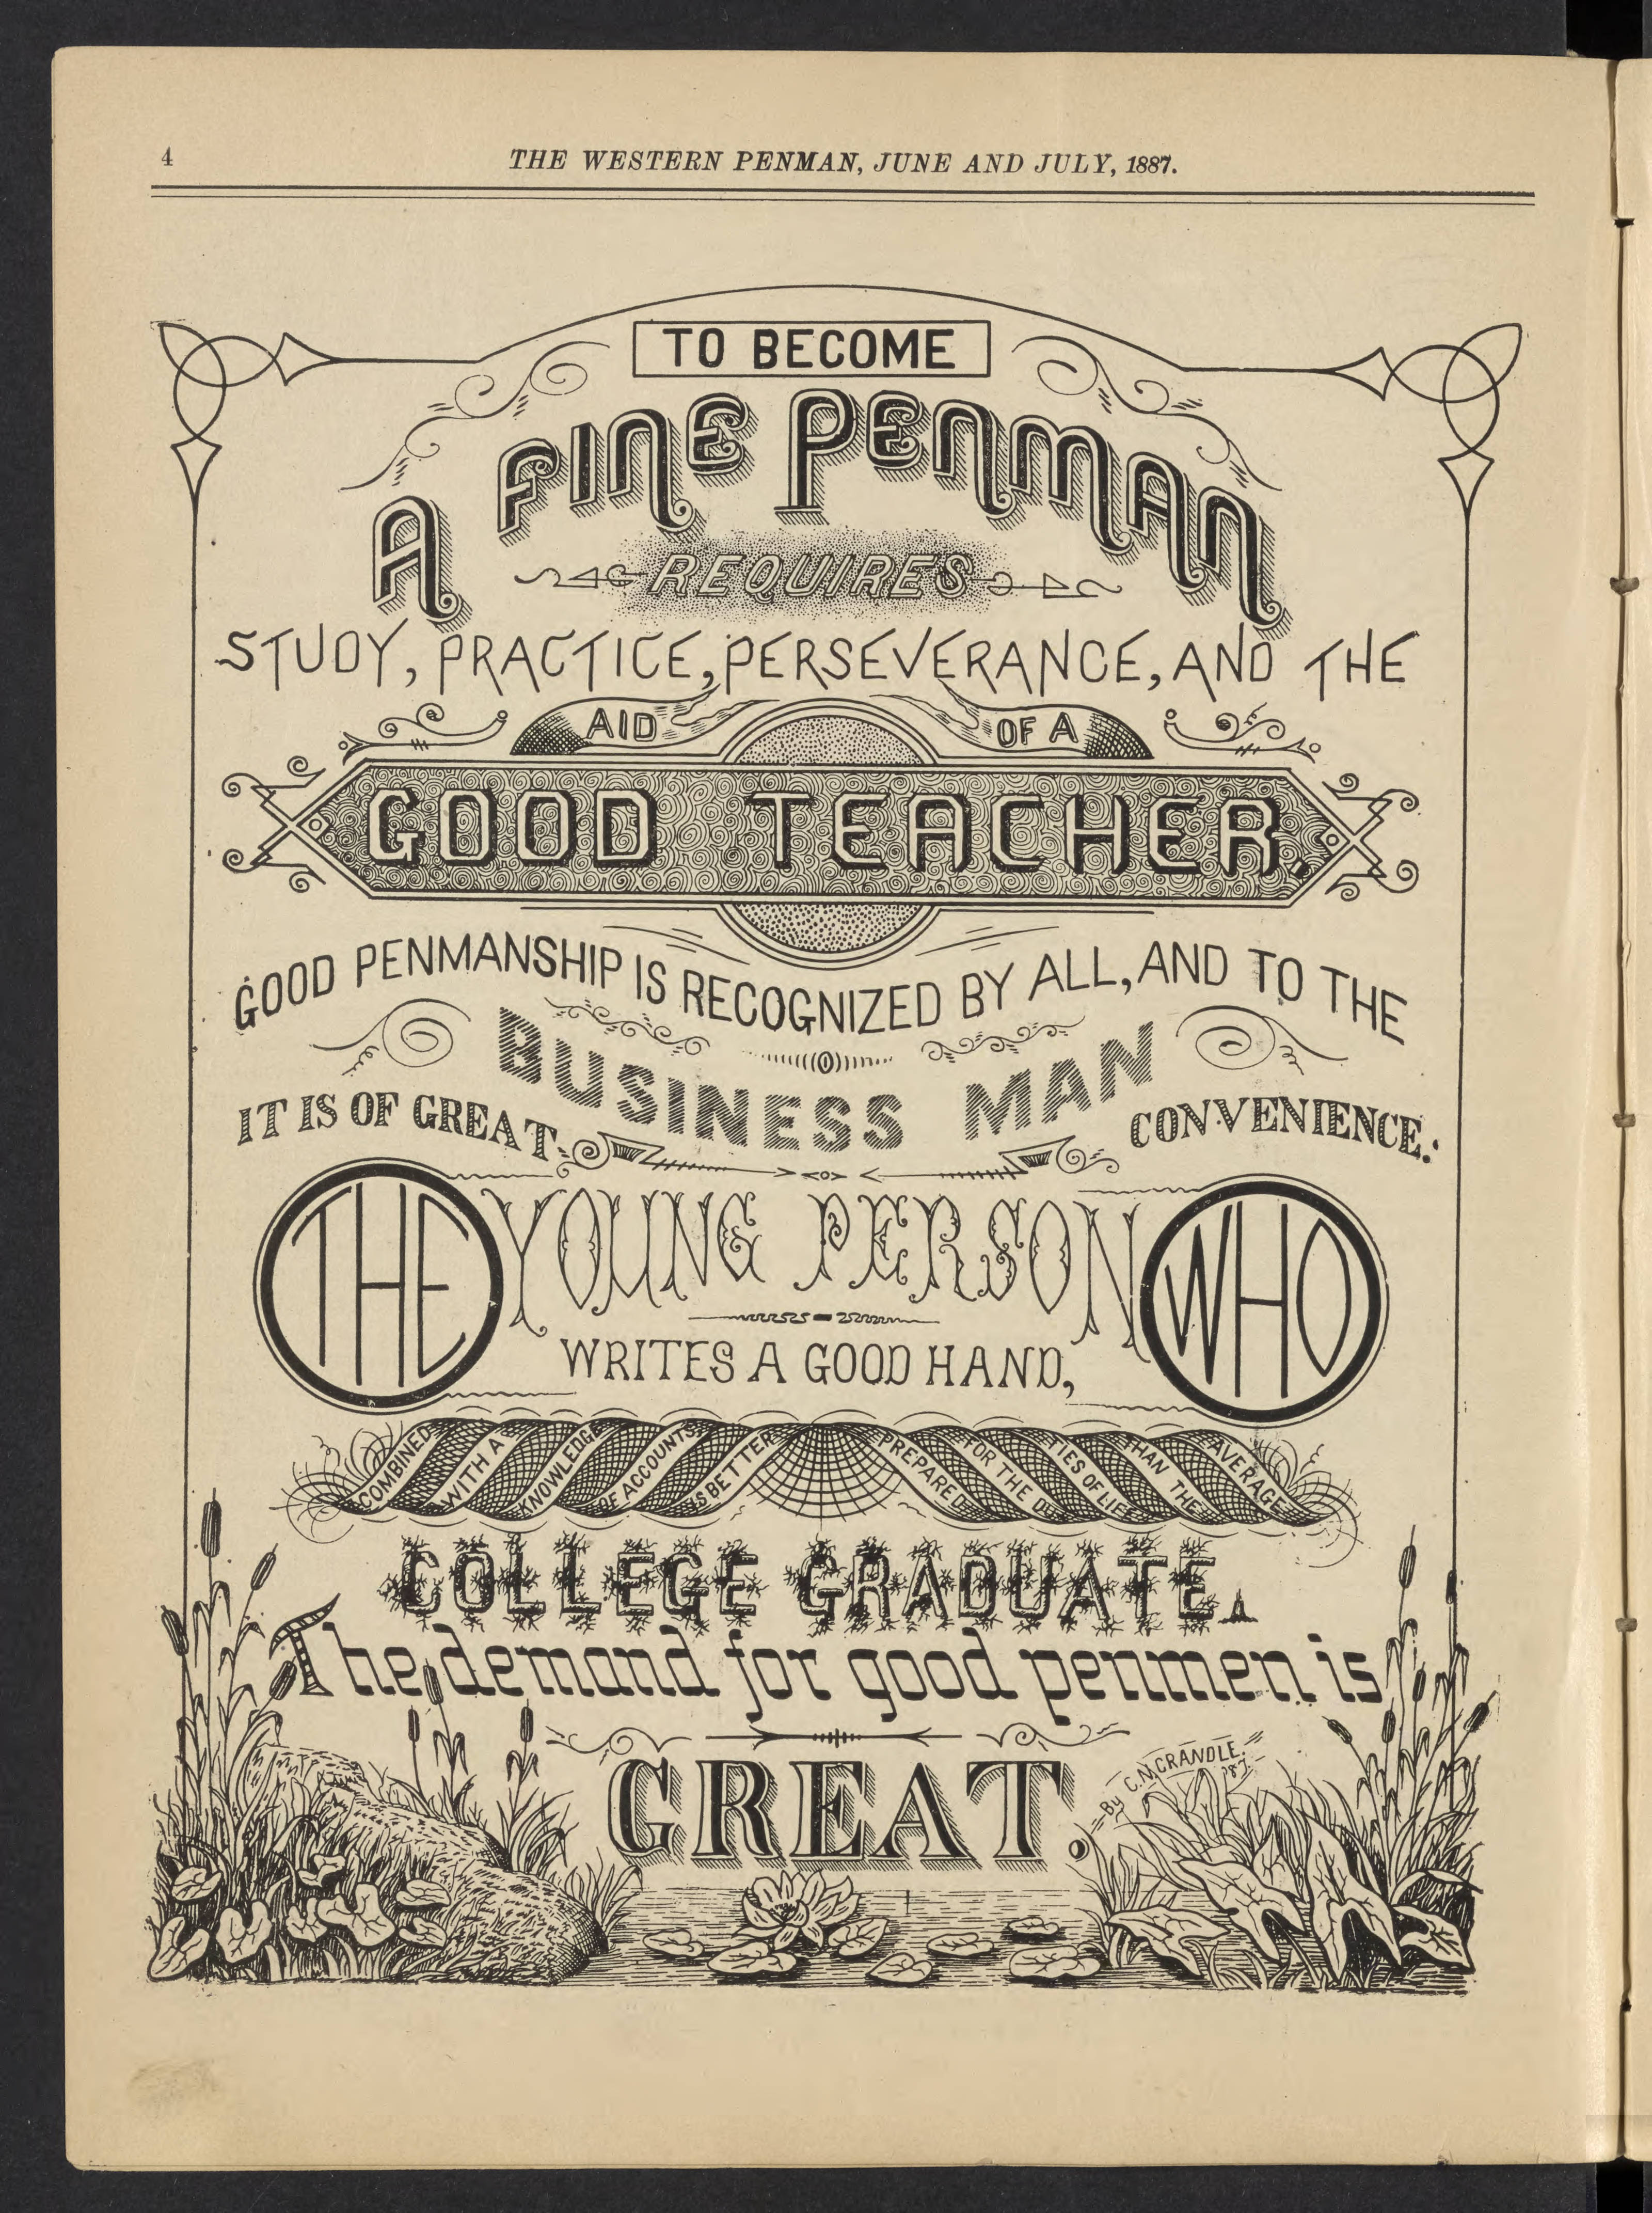 4
THE WESTERN PENMAN, JUNE AND JULY, 1887.
TO BECOME
A FINE PENMAN
REQUIRES
STUDY, PRACTICE, PERSEVERANCE, AND THE
AID OF A
GOOD TEACHER.
GOOD PENMANSHIP IS RECOGNIZED BY ALL, AND TO THE
BUSINESS MAN
IT IS OF GREAT CONVENIENCE.
THE YOUNG PERSON WHO
WRITES A GOOD HAND,
COMBINED WITH A KNOWLEDGE OF ACCOUNTS IS BETTER PREPARED FOR THE DUTIES OF LIFE THAN THE AVERAGE
COLLEGE GRADUATE.
The demand for good penmen is
GREAT.
By C.M. CRANDLE. '87